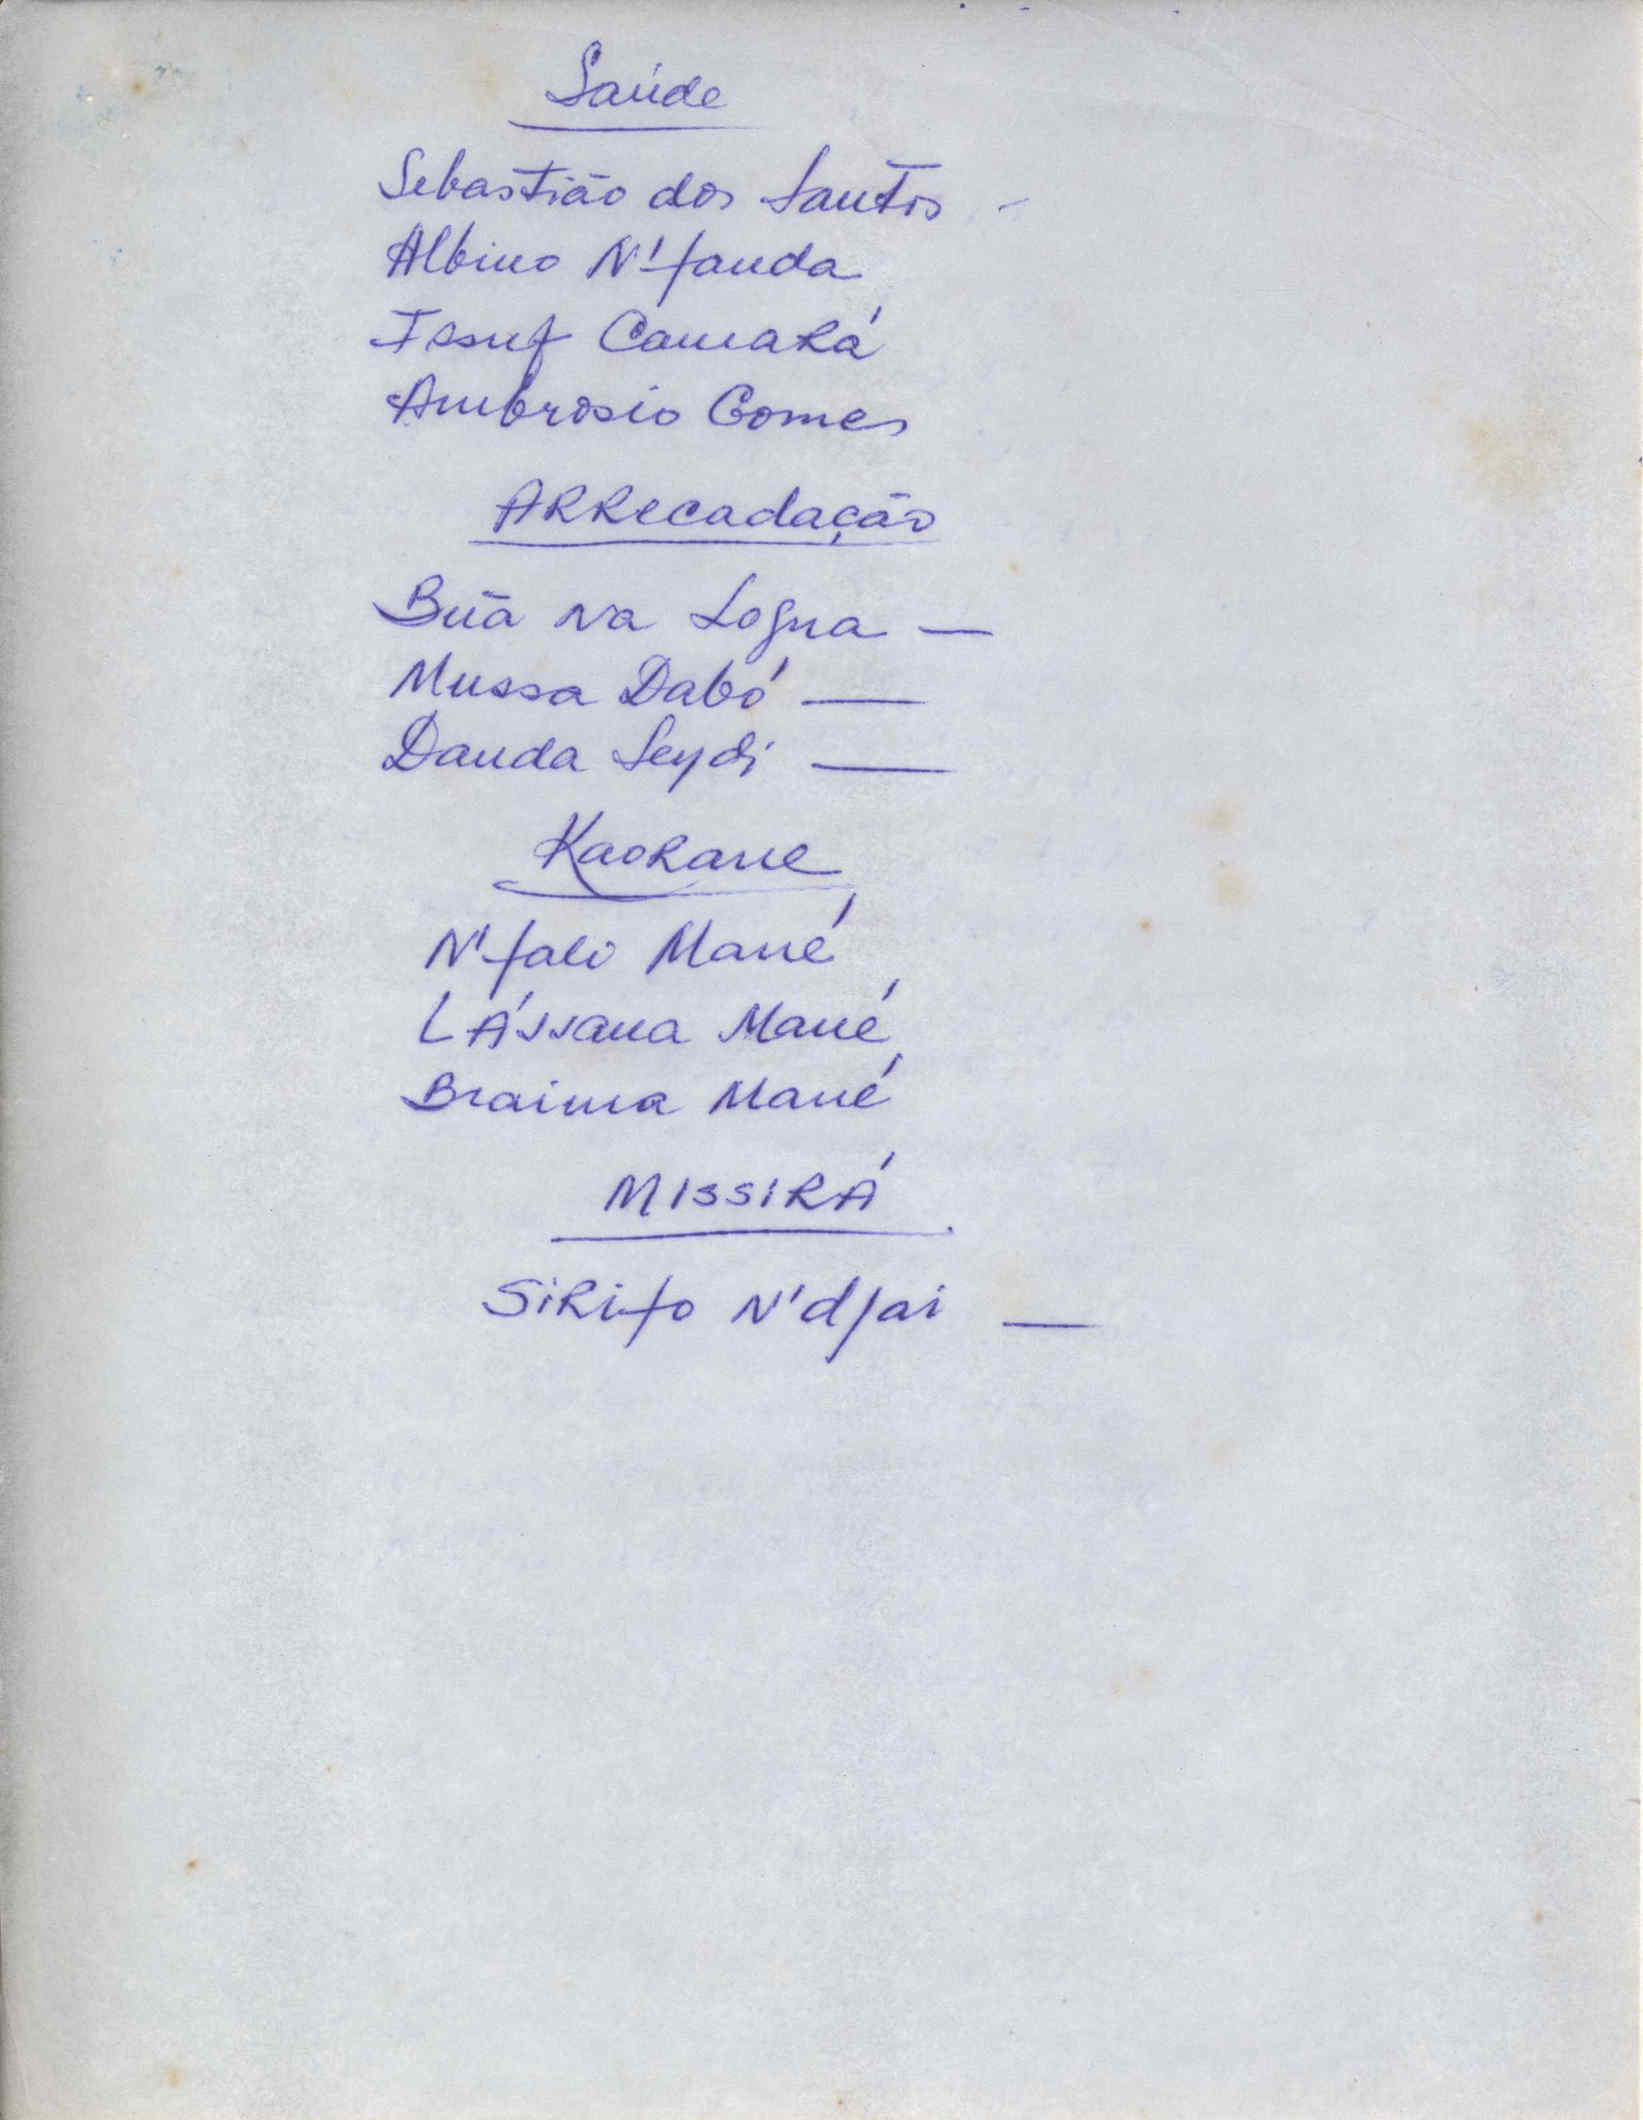 Saúde
Sebastião dos Santos -
Albino N'fanda
Issuf Camará
Ambrosio Gomes
ARRecadação
Buā Na Logna —
Mussa Dabó —
Dauda Seydi —
Kaorane
N'fali Mané
LÁssana Mané
Braima Mané
MISSIRÁ
SiRifo N'djai —